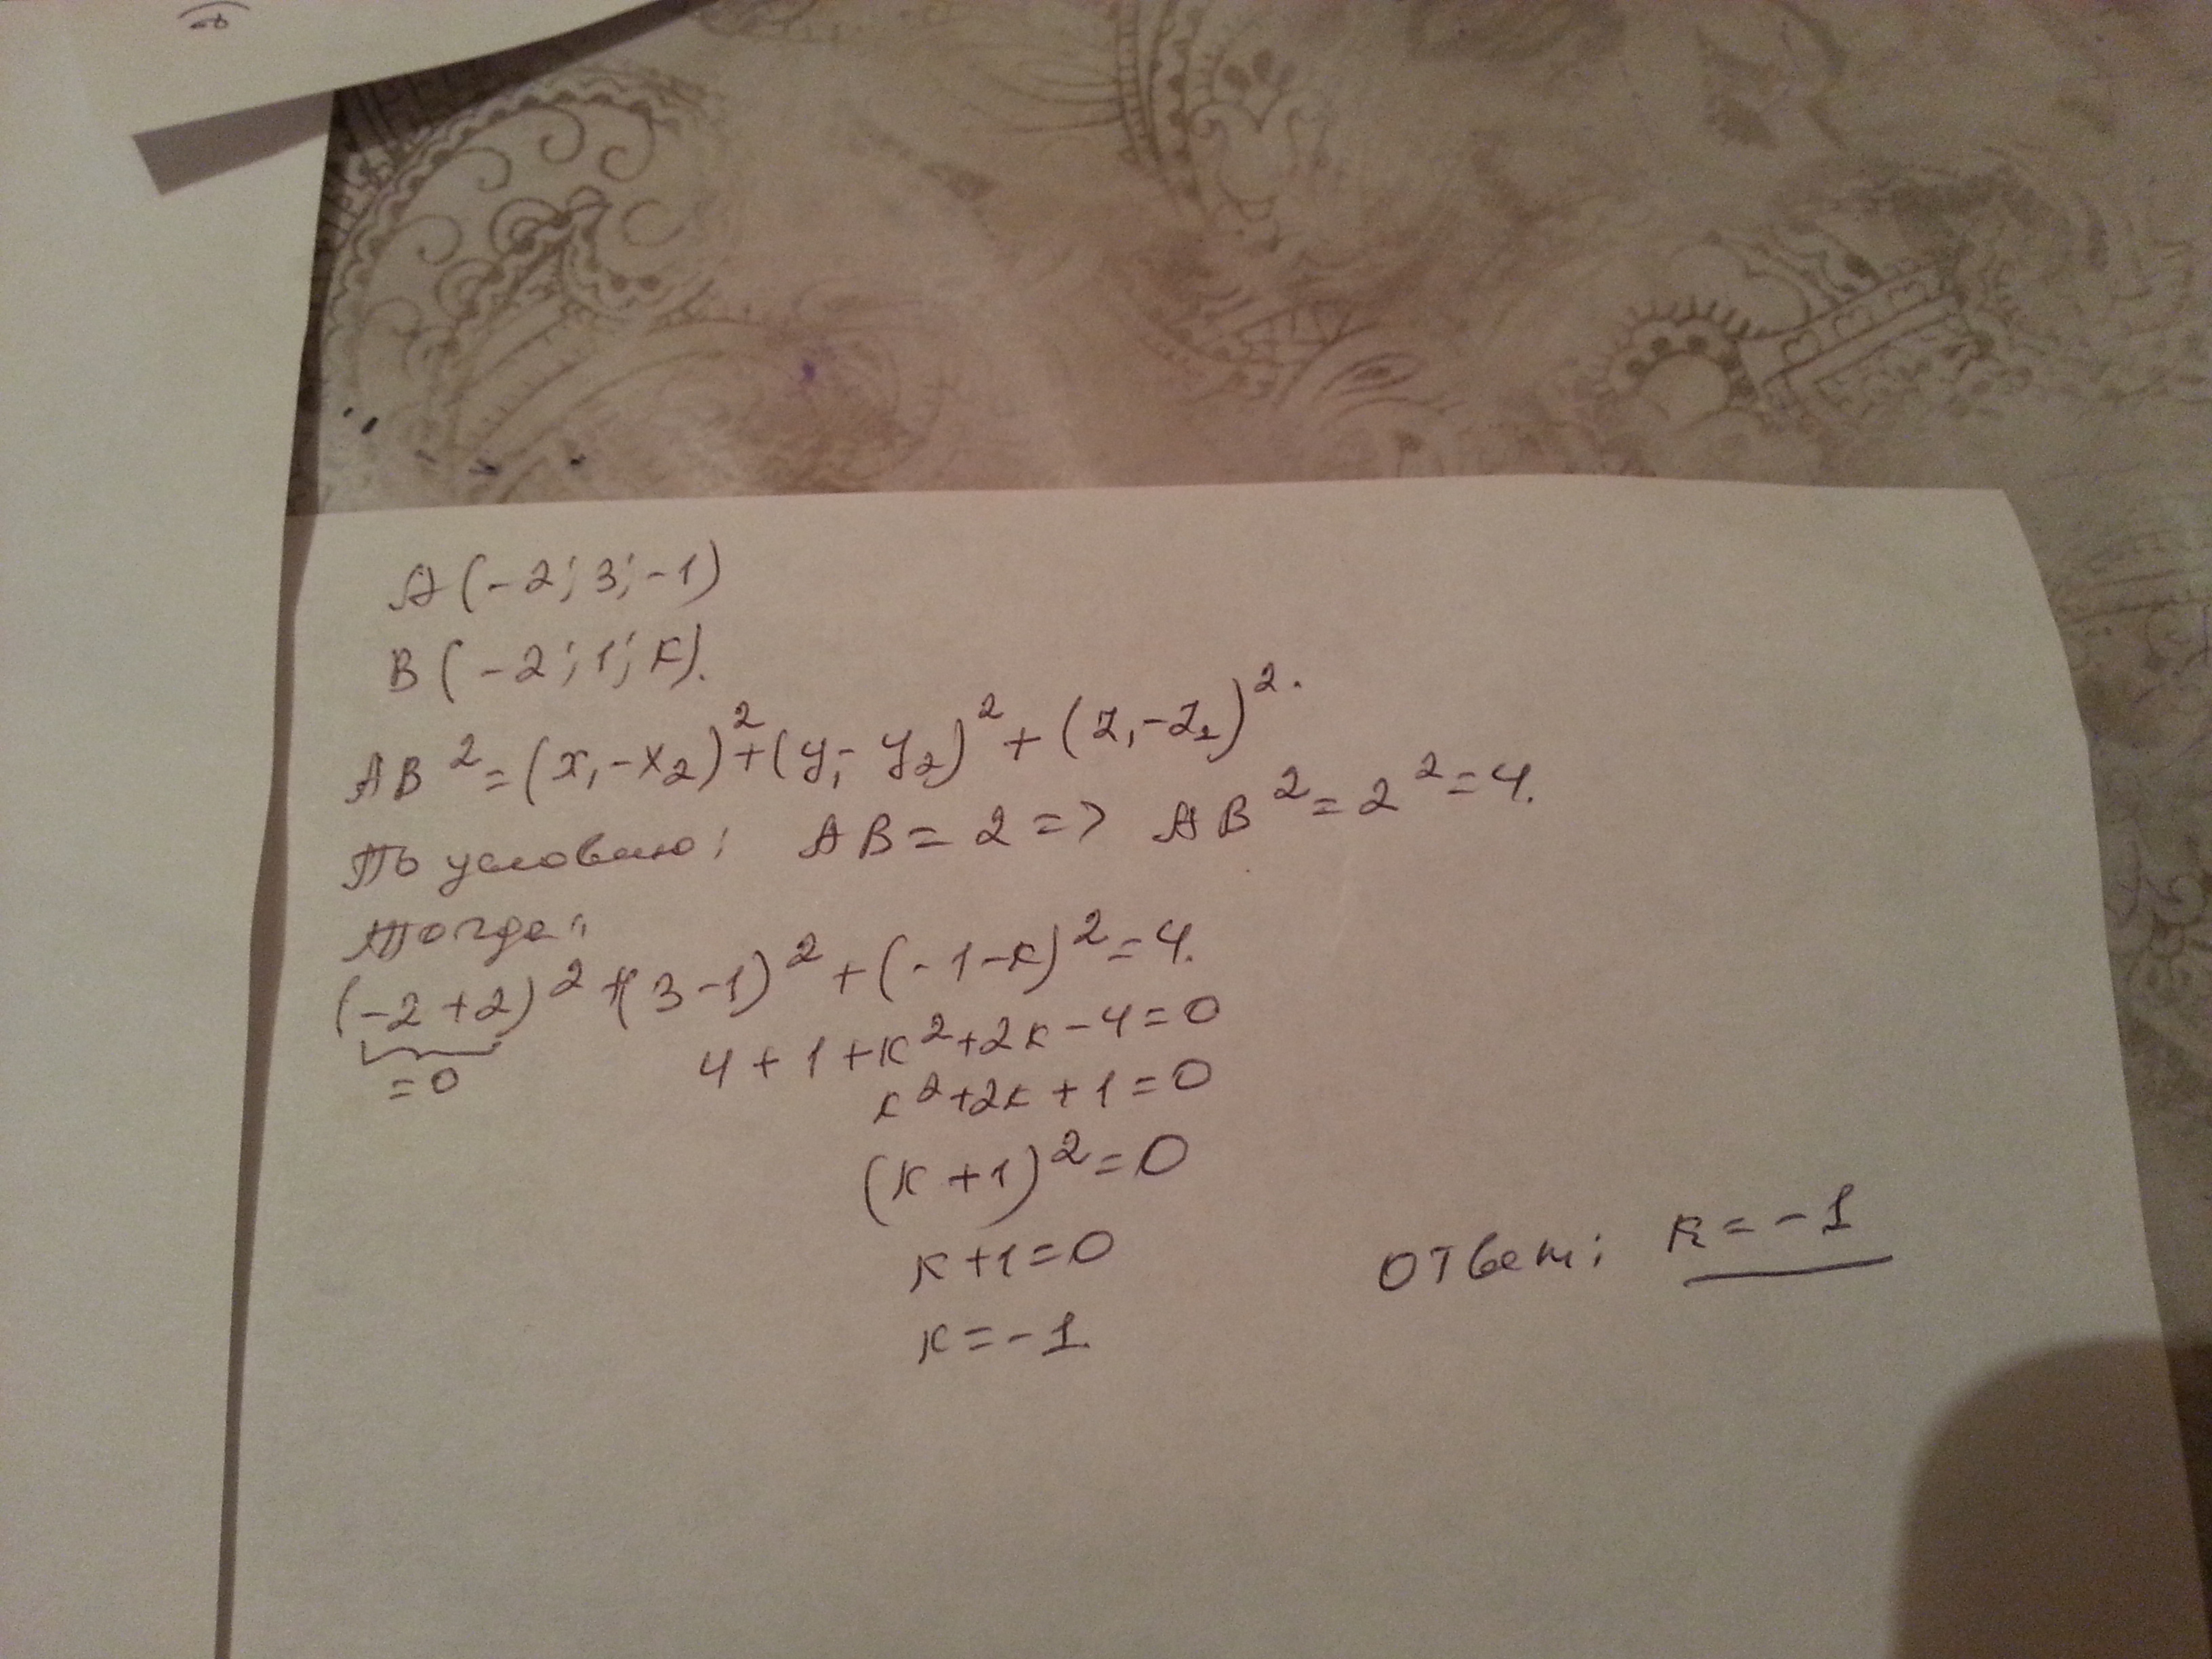 A(-2; 3; -1)
B(-2; 1; к).
AB² = (x₁-x₂)²+(y₁-y₂)²+(z₁-z₂)².
По условию: AB = 2 => AB² = 2² = 4.
Тогда:
(-2+2)²+(3-1)²+(-1-к)²=4.
=0
4+1+к²+2к-4=0
к²+2к+1=0
(к+1)²=0
к+1=0
к=-1.
Ответ: к=-1